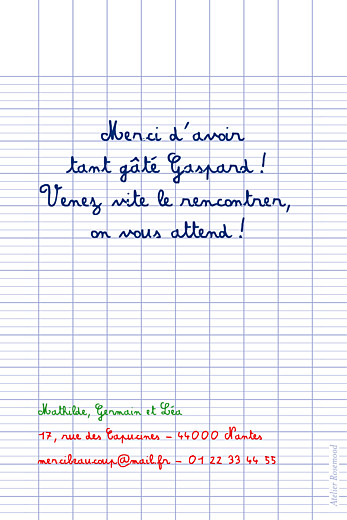 Merci d'avoir
tant gâté Gaspard !
Venez vite le rencontrer,
on vous attend !
Mathilde, Germain et Léa
17, rue des Capucines – 44000 Nantes
mercibeaucoup@mail.fr – 01 22 33 44 55
Atelier Rosemood